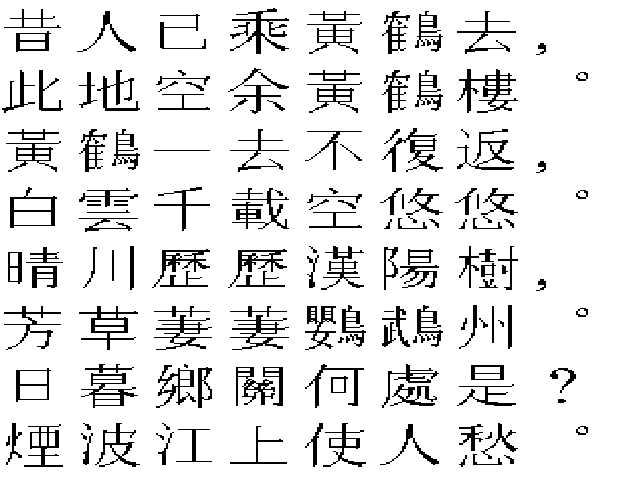 昔人已乘黃鶴去，
此地空余黃鶴樓。
黃鶴一去不復返，
白雲千載空悠悠。
晴川歷歷漢陽樹，
芳草萋萋鸚鵡州。
日暮鄉關何處是？
煙波江上使人愁。